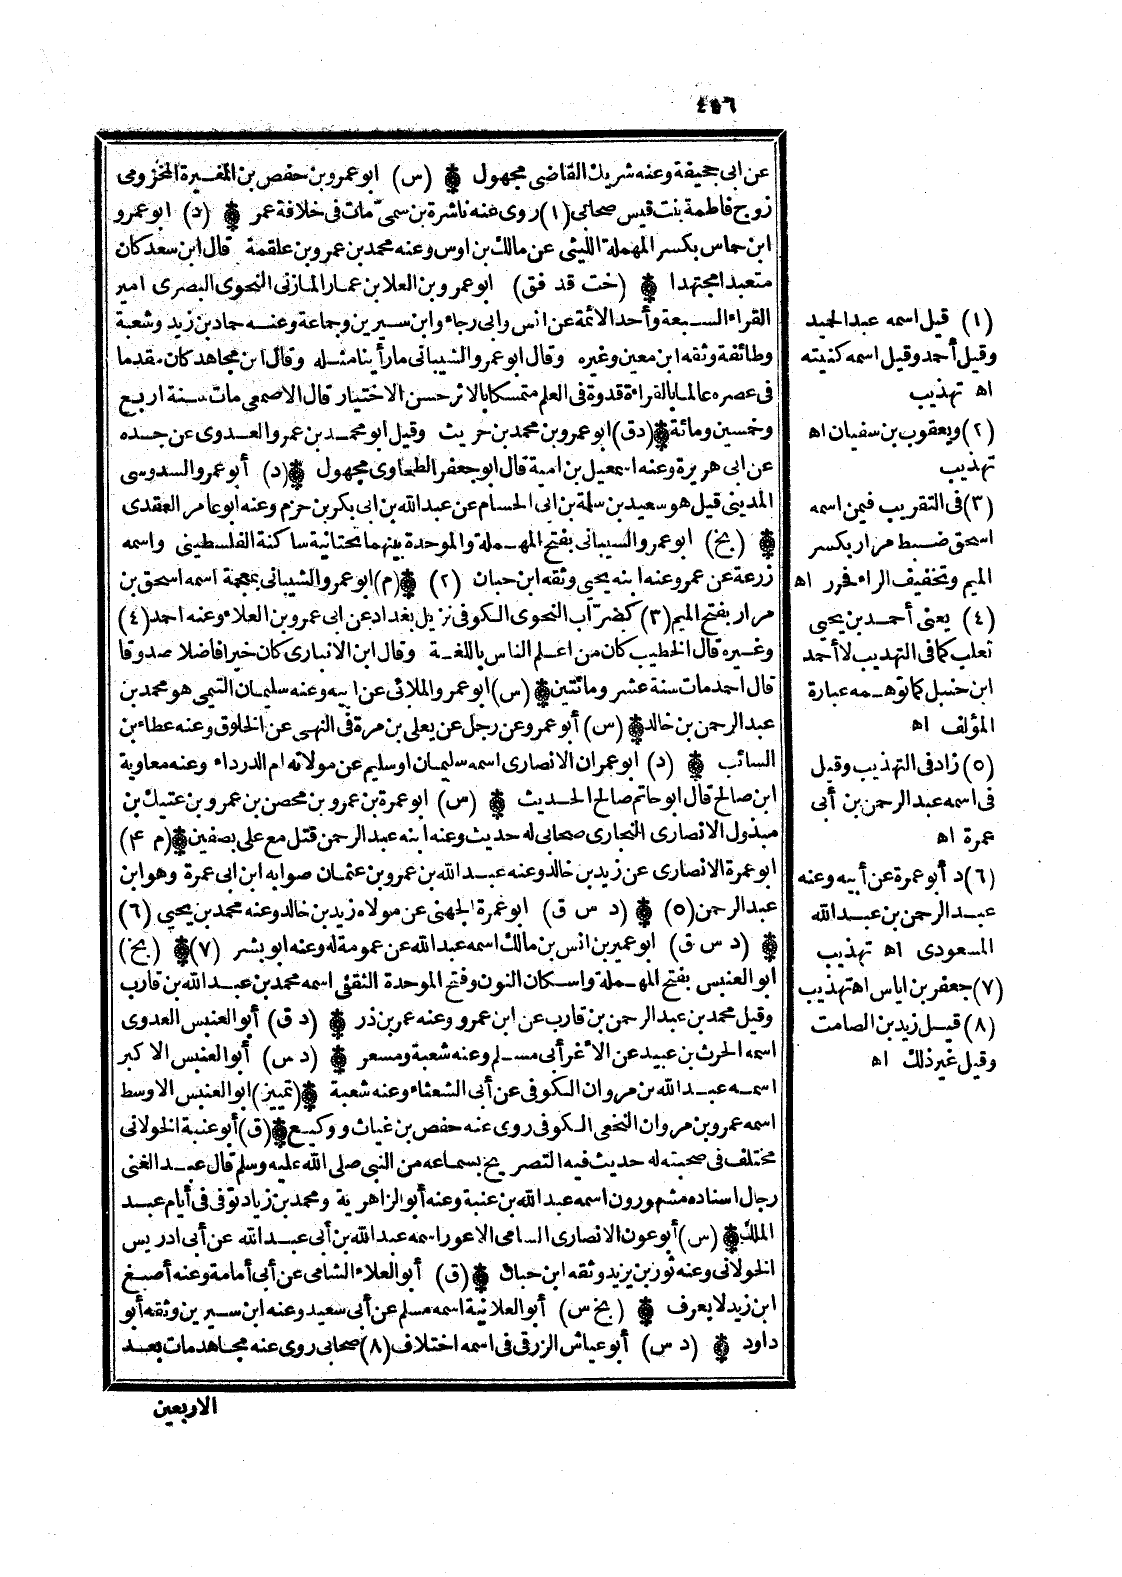 ٤٥٦
عن ابى جحيفة وعنه شريك القاضى مجهول (س) ابوعمرو بن حفص بن المغيرة المخزومى
زوج فاطمة بنت قيس صحابى (١) روى عنه ناشرة بن سمىّ مات فى خلافة عمر (د) ابوعمرو
ابن حماس بكسر المهملة الليثى عن مالك بن اوس وعنه محمد بن عمرو بن علقمة قال ابن سعد كان
متعبدا مجتهدا (خت قد فق) ابوعمرو بن العلا بن عمار المازنى النحوى البصرى امير
القراء السبعة وأحد الائمة عن انس وابى رجاء وابن سيرين وجماعة وعنه حماد بن زيد وشعبة
وطائفة وثقه ابن معين وغيره وقال ابوعمرو الشيبانى مارأينا مثله وقال ابن مجاهد كان مقدما
فى عصره عالما بالقراءة قدوة فى العلم متمسكا بالاثر حسن الاختيار قال الاصمعى مات سنة اربع
وخمسين ومائة (دق) ابوعمرو بن محمد بن حريث وقيل ابو محمد بن عمرو العدوى عن جده
عن ابى هريرة وعنه اسمعيل بن امية قال ابو جعفر الطحاوى مجهول (د) أبوعمرو السدوسى
المدينى قيل هو سعيد بن سلمة بن ابى الحسام عن عبدالله بن ابى بكر بن حزم وعنه ابوعامر العقدى
(بخ) ابوعمرو السيبانى بفتح المهملة والموحدة بينهما تحتانية ساكنة الفلسطينى واسمه
زرعة عن عمر وعنه ابنه يحيى وثقه ابن حبان (٢) (م) ابوعمرو الشيبانى بمعجمة اسمه اسحق بن
مرار بفتح الميم (٣) كضرّاب النحوى الكوفى نزيل بغداد عن ابى عمرو بن العلاء وعنه احمد (٤)
وغيره قال الخطيب كان من اعلم الناس باللغة وقال ابن الانبارى كان خيرا فاضلا صدوقا
قال احمد مات سنة عشر ومائتين (س) ابوعمرو الملائى عن ابيه وعنه سليمان التيمى هو محمد بن
عبدالرحمن بن خالد (س) أبوعمرو عن رجل عن يعلى بن مرة فى النهى عن الخلوق وعنه عطاء بن
السائب (د) ابوعمران الانصارى اسمه سليمان او سليم عن مولاته ام الدرداء وعنه معاوية
ابن صالح قال ابوحاتم صالح الحديث (س) ابوعمرة بن عمرو بن محصن بن عمرو بن عتيك بن
مبذول الانصارى النجارى صحابى له حديث وعنه ابنه عبدالرحمن قتل مع على بصفين (م ٤)
ابوعمرة الانصارى عن زيد بن خالد وعنه عبدالله بن عمرو بن عثمان صوابه ابن ابى عمرة وهو ابن
عبدالرحمن (٥) (د س ق) ابوعمرة الجهنى عن مولاه زيد بن خالد وعنه محمد بن يحيى (٦)
(د س ق) ابوعمير بن انس بن مالك اسمه عبدالله عن عمومة له وعنه ابو بشر (٧) (بخ)
ابوالعنبس بفتح المهملة واسكان النون وفتح الموحدة الثقفى اسمه محمد بن عبدالله بن قارب
وقيل محمد بن عبدالرحمن بن قارب عن ابن عمرو وعنه عمر بن ذر (د ق) أبوالعنبس العدوى
اسمه الحرث بن عبيد عن الأغر أبى مسلم وعنه شعبة ومسعر (د س) أبوالعنبس الاكبر
اسمه عبدالله بن مروان الكوفى عن أبى الشعثاء وعنه شعبة (تمييز) ابوالعنبس الاوسط
اسمه عمرو بن مروان النخعى الكوفى روى عنه حفص بن غياث ووكيع (ق) أبوعنبة الخولانى
مختلف فى صحبته له حديث فيه التصريح بسماعه من النبى صلى الله عليه وسلم قال عبد الغنى
رجال اسناده مشهورون اسمه عبدالله بن عنبة وعنه أبوالزاهرية ومحمد بن زياد توفى فى أيام عبد
الملك (س) أبوعون الانصارى الشامى الاعور اسمه عبدالله بن أبى عبدالله عن أبى ادريس
الخولانى وعنه ثور بن يزيد وثقه ابن حبان (ق) أبوالعلاء الشامى عن أبى أمامة وعنه أصبغ
ابن زيد لا يعرف (بخ س) أبوالعلانية اسمه مسلم عن أبى سعيد وعنه ابن سيرين وثقه أبو
داود (د س) أبوعياش الزرقى فى اسمه اختلاف (٨) صحابى روى عنه مجاهد مات بعد
الاربعين
(١) قيل اسمه عبدالحميد
وقيل أحمد وقيل اسمه كنيته
اه تهذيب
(٢) ويعقوب بن سفيان اه
تهذيب
(٣) فى التقريب فيمن اسمه
اسحق ضبط مرار بكسر
الميم وتخفيف الراء فحرر اه
(٤) يعنى أحمد بن يحيى
ثعلب كما فى التهذيب لا أحمد
ابن حنبل كما توهمه عبارة
المؤلف اه
(٥) زاد فى التهذيب وقيل
فى اسمه عبدالرحمن بن أبى
عمرة اه
(٦) د أبوعمرة عن أبيه وعنه
عبدالرحمن بن عبدالله
المسعودى اه تهذيب
(٧) جعفر بن اياس اه تهذيب
(٨) قيل زيد بن الصامت
وقيل غير ذلك اه